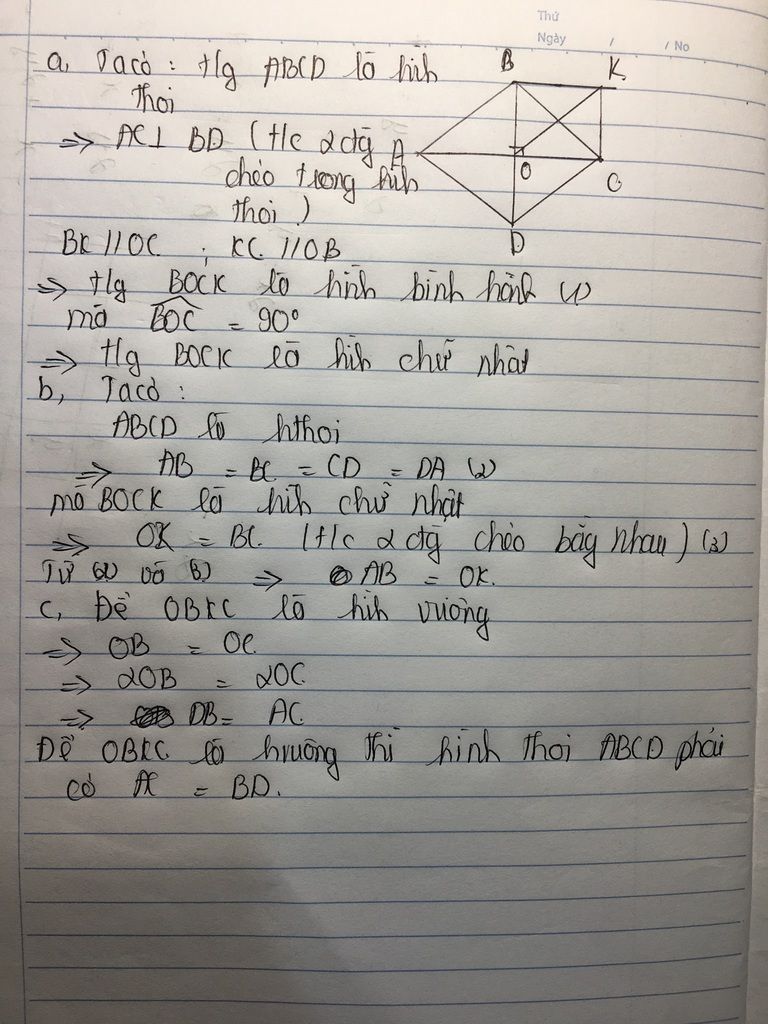 Thứ
Ngày / / No
a, Ta có : t/g ABCD là hình
thoi
B K
A O C
D
=> AC ⊥ BD (t/c 2 đg
chéo trong hình
thoi)
BK // OC ; KC // OB
=> t/g BOCK là hình bình hành (1)
mà BOC = 90°
=> t/g BOCK là hìh chữ nhật
b, Ta có :
ABCD là hthoi
=> AB = BC = CD = DA (2)
mà BOCK là hìh chữ nhật
=> OK = BC (t/c 2 đg chéo bằg nhau) (3)
Từ (2) và (3) => AB = OK.
c, Để OBKC là hìh vuông
=> OB = OC
=> 2OB = 2OC
=> DB = AC
Để OBKC là hvuông thì hình thoi ABCD phải
có AC = BD.